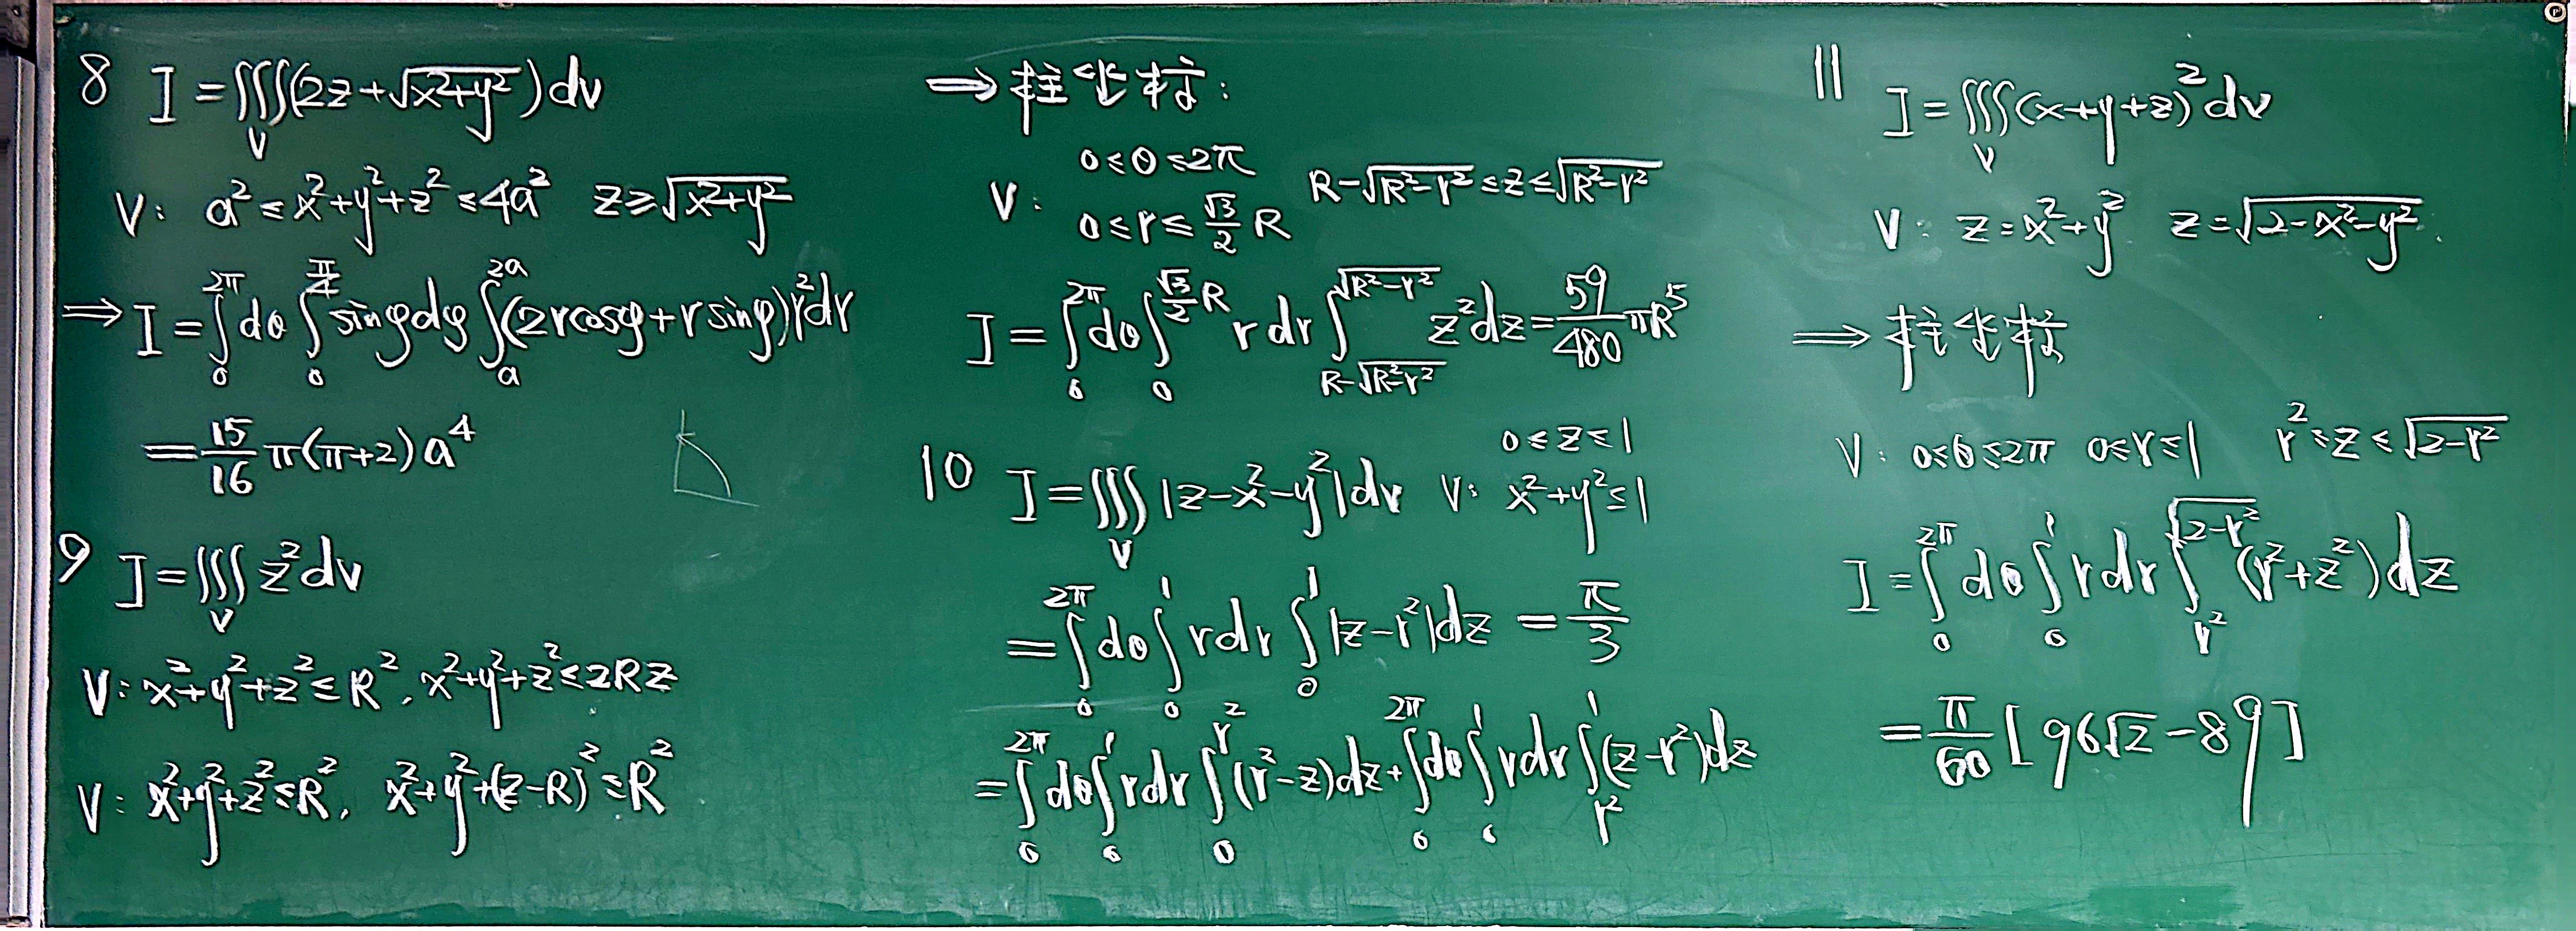 8 I=∭_V(2z+√(x²+y²))dv
V: a²≤x²+y²+z²≤4a² z≥√(x²+y²)
⇒ I=∫_0^{2π}dθ∫_0^{π/4}sinφdφ∫_a^{2a}(2rcosφ+rsinφ)r²dr
=15/16 π(π+2)a⁴
9 I=∭_V z²dv
V: x²+y²+z²≤R², x²+y²+z²≤2Rz
V: x²+y²+z²≤R², x²+y²+(z-R)²≤R²
⇒柱坐标:
V: 0≤θ≤2π 0≤r≤(√3/2)R R-√(R²-r²)≤z≤√(R²-r²)
I=∫_0^{2π}dθ∫_0^{(√3/2)R}rdr∫_{R-√(R²-r²)}^{√(R²-r²)}z²dz=59/480 πR⁵
10 I=∭_V|z-x²-y²|dv V: 0≤z≤1 x²+y²≤1
=∫_0^{2π}dθ∫_0^1 rdr∫_0^1|z-r²|dz=π/3
=∫_0^{2π}dθ∫_0^1 rdr∫_0^{r²}(r²-z)dz+∫_0^{2π}dθ∫_0^1 rdr∫_{r²}^1(z-r²)dz
11 I=∭_V(x+y+z)²dv
V: z=x²+y² z=√(2-x²-y²).
⇒柱坐标
V: 0≤θ≤2π 0≤r≤1 r²≤z≤√(2-r²)
I=∫_0^{2π}dθ∫_0^1 rdr∫_{r²}^{√(2-r²)}(r²+z²)dz
=π/60[96√2-89]